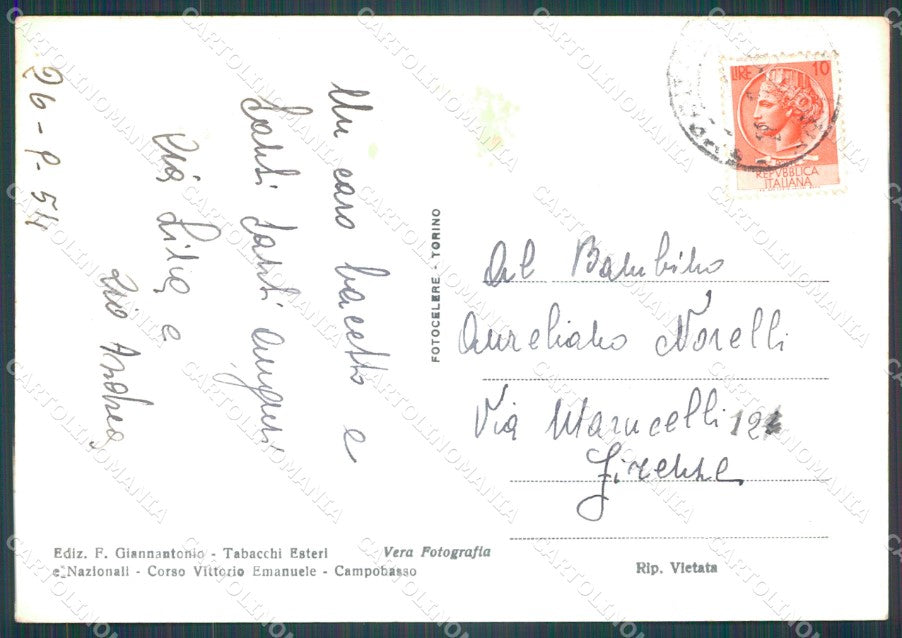 26-9-54
Un caro bacetto e
tanti tanti auguri
zia Lilia e
zio Andrea
FOTOCELERE - TORINO
LIRE 10
REPVBBLICA
ITALIANA
Al Bambino
Aureliano Norelli
Via Marucelli 12
Firenze
Ediz. F. Giannantonio - Tabacchi Esteri
e Nazionali - Corso Vittorio Emanuele - Campobasso
Vera Fotografia
Rip. Vietata
CARTOLINOMANIA